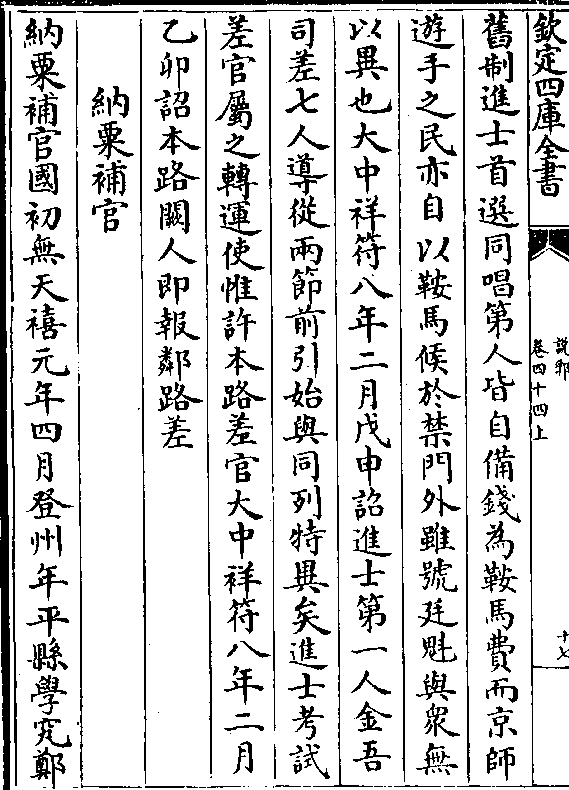 欽定四庫全書
說郛
卷四十四上
十七
舊制進士首選同唱第人皆自備錢為鞍馬費而京師
遊手之民亦自以鞍馬候於禁門外雖號廷魁與衆無
以異也大中祥符八年二月戊申詔進士第一人金吾
司差七人導從兩節前引始與同列特異矣進士考試
差官屬之轉運使惟許本路差官大中祥符八年二月
乙卯詔本路闕人即報鄰路差
納粟補官
納粟補官國初無天禧元年四月登州年平縣學究鄭